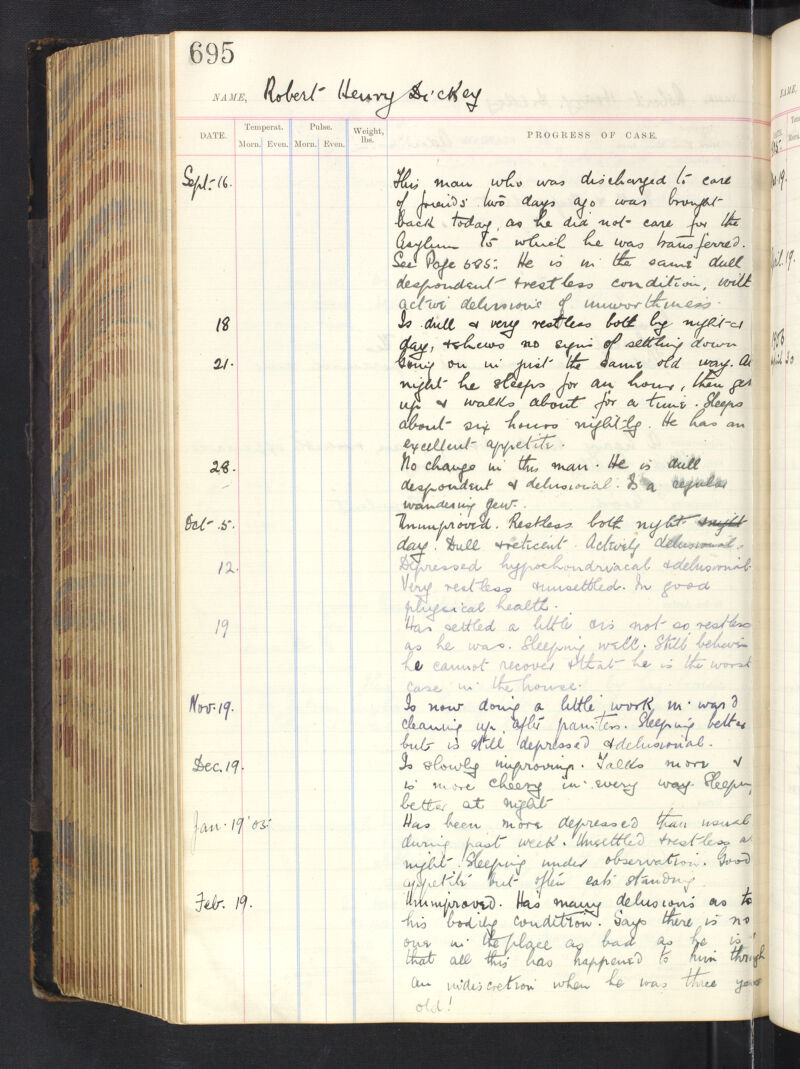 695
NAME, Robert Henry Dickey
DATE. Temperat. Pulse. Weight, lbs. PROGRESS OF CASE.
Morn. Even. Morn. Even.
Sept. 16. This man who was discharged to care
of friends two days ago was brought
back today, as he did not care for the
Asylum to which he was transferred.
See Page 585. He is in the same dull
despondent & restless condition, with
active delusions of unworthiness.
18 Is dull & very restless both by night &
day, & shews no signs of settling down
21. Going on in just the same old way. At
night he sleeps for an hour, then gets
up & walks about for a time. Sleeps
about six hours nightly. He has an
excellent appetite.
28. No change in this man. He is dull
despondent & delusional. Is a regular
wandering Jew.
Oct. 5. Unimproved. Restless both night & night
day. Dull & reticent. Actively delusional.
12. Depressed hypochondriacal & delusional.
Very restless & unsettled. In good
physical health.
19 Has settled a little & is not so restless
as he was. Sleeping well. Still believes
he cannot recover & that he is the worst
case in the house.
Nov. 19. Is now doing a little work in ward
cleaning up after painters. Sleeping better
but is still depressed & delusional.
Dec. 19. Is slowly improving. Talks more &
is more cheery in every way. Sleeping
better at night
Jan. 19 '03. Has been more depressed than usual
during past week. Unsettled & restless at
night. Sleeping under observation. Good
appetite but often eats standing.
Feb. 19. Unimproved. Has many delusions as to
his bodily condition. Says there is no
one in the place as bad as he is &
that all this has happened to him through
an indiscretion when he was three years
old!
NAME,